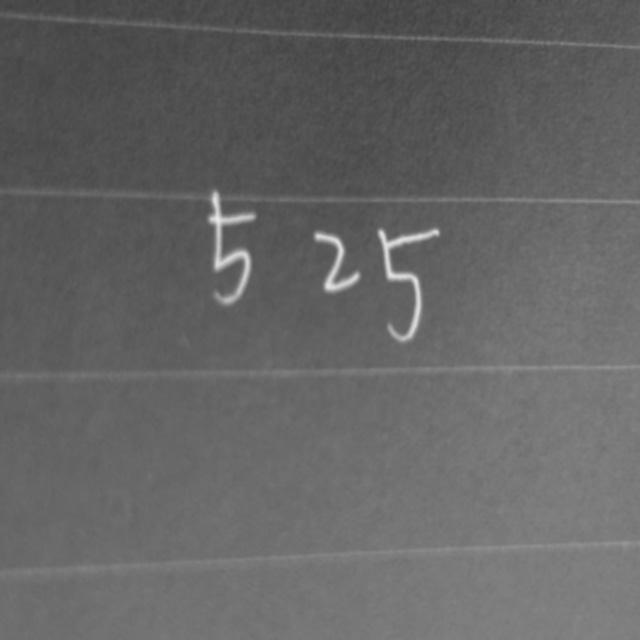 5 25